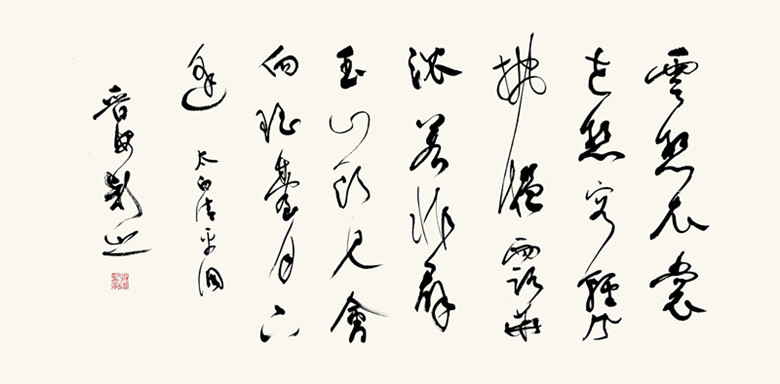 雲想衣裳
花想容風
拂檻露華
濃若非群
玉山頭見會
向瑤臺月下
逢 太白清平調